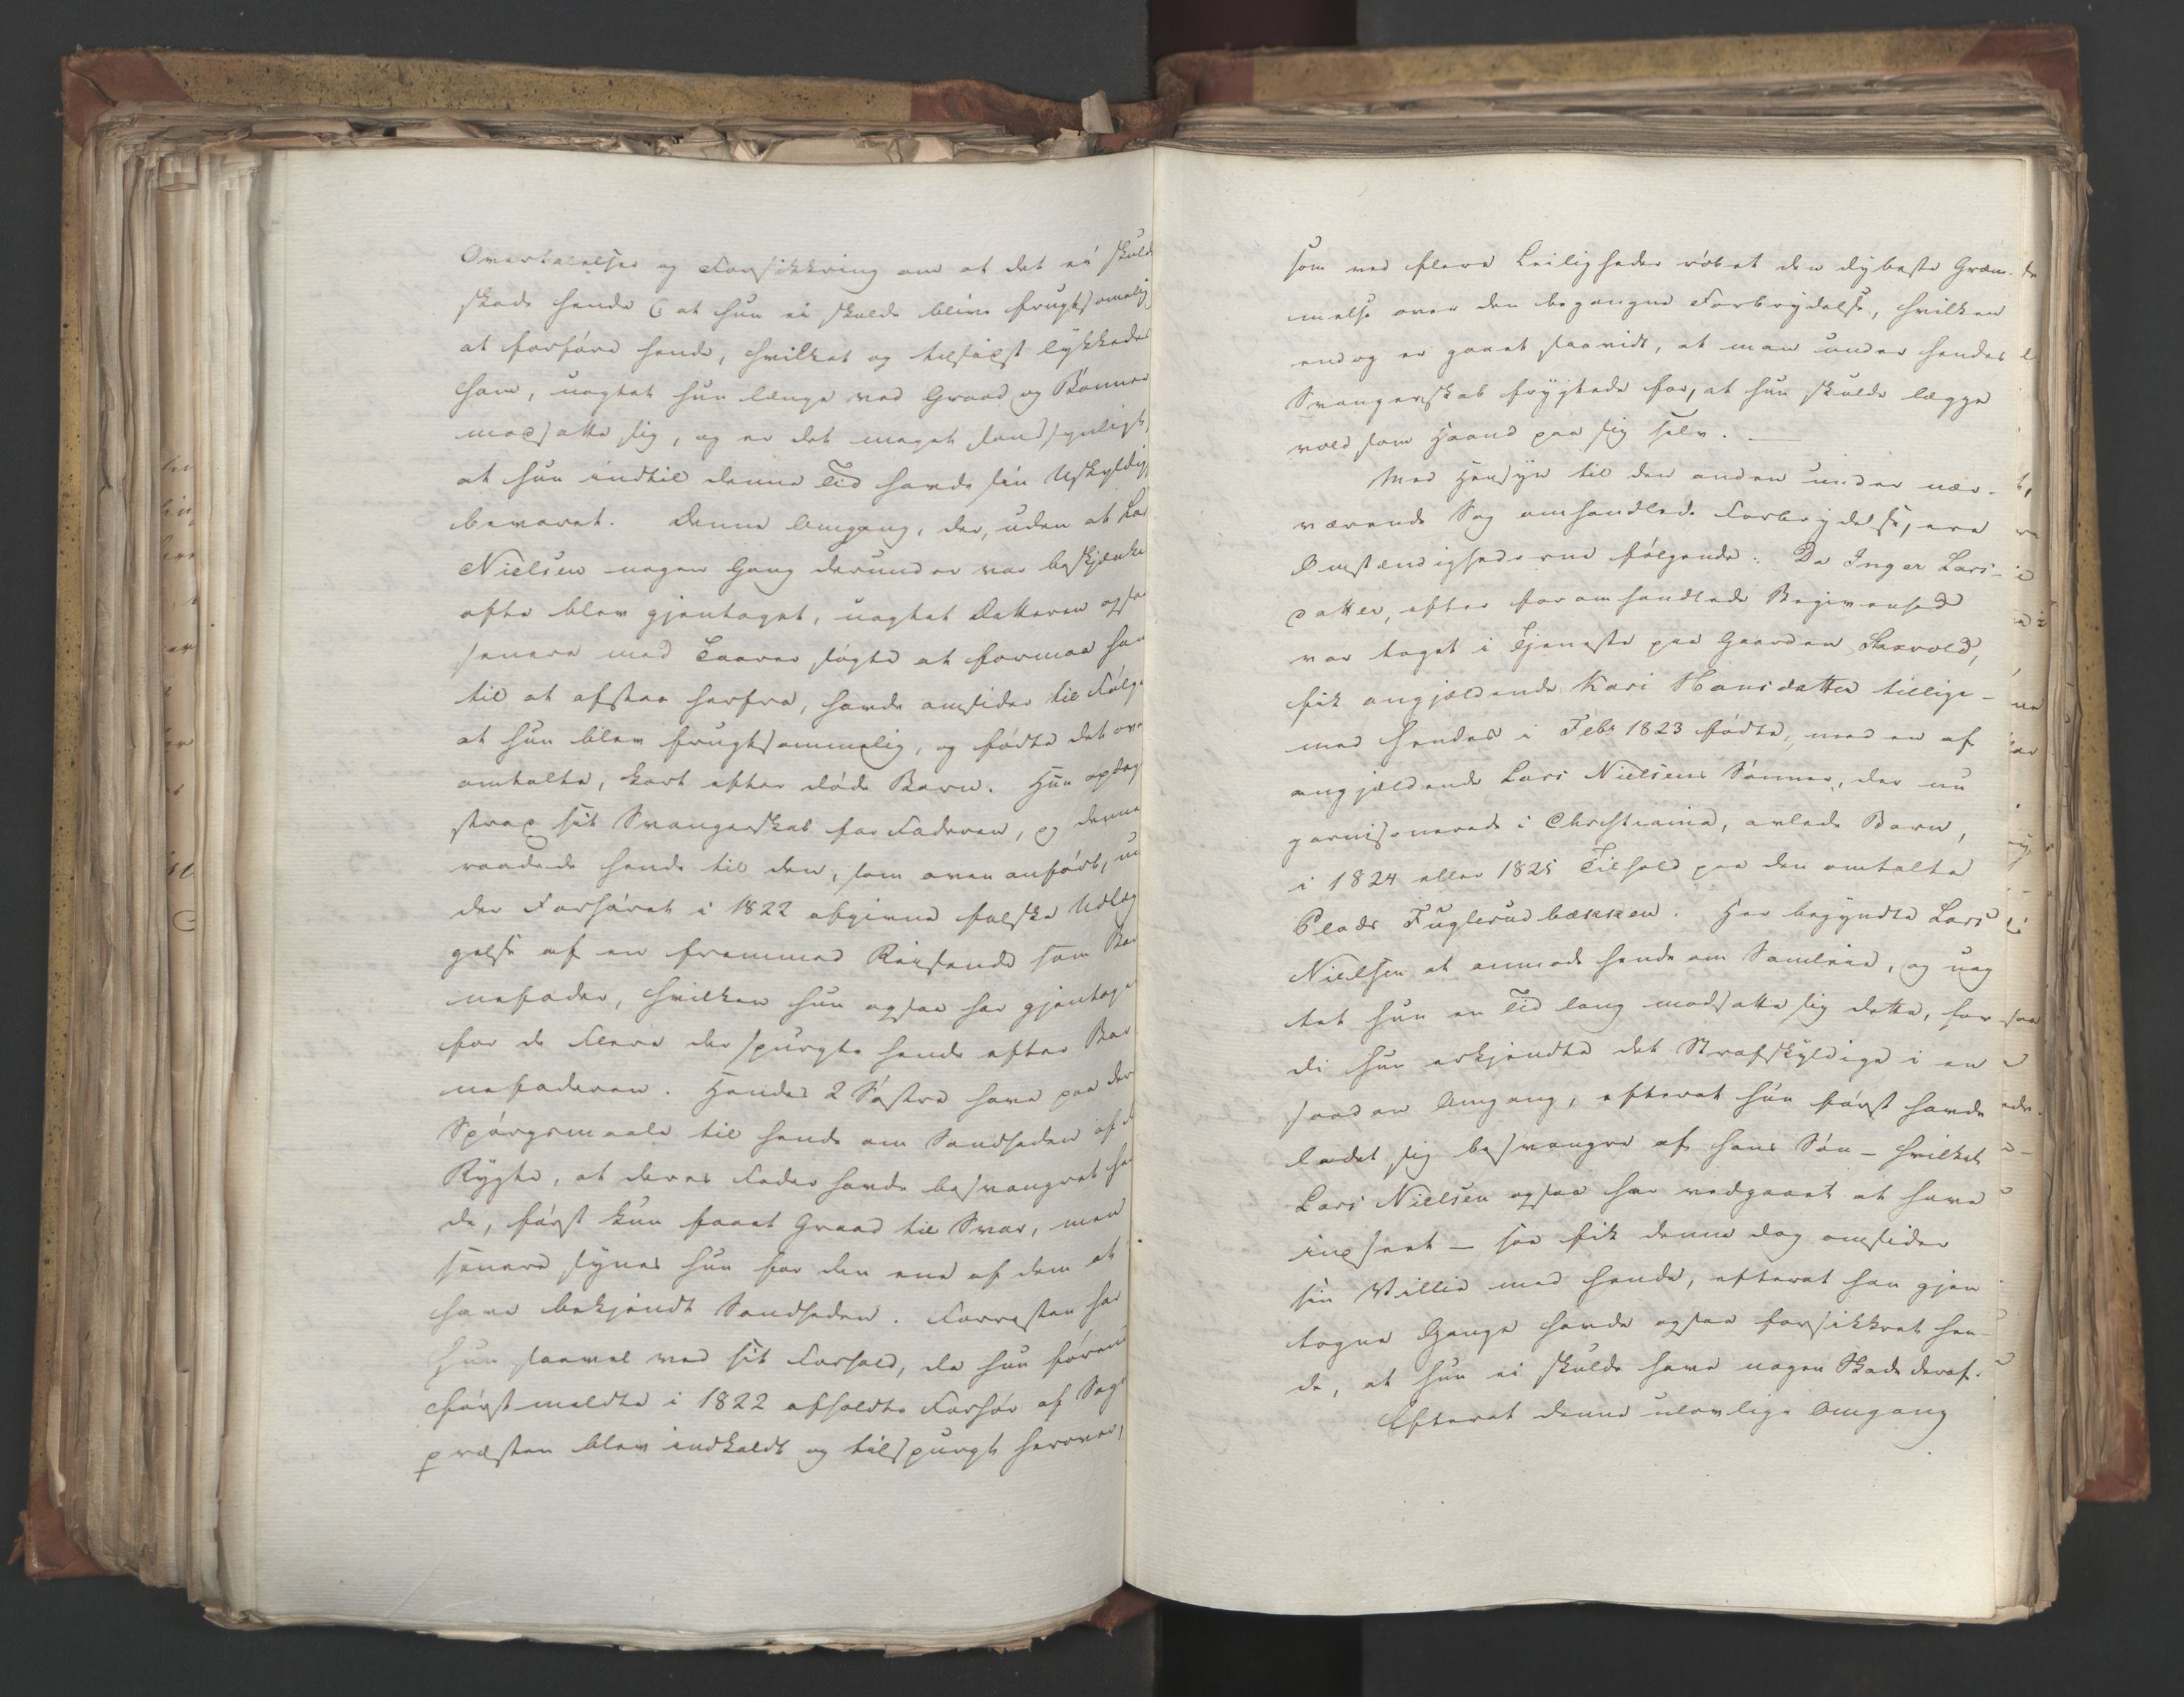 Overtalelser og Forsikkring om at det ei skuld
skade hende & at hun ei skulde blive frugtsomelig
at forføre hende, hvilket og tilsidst lykkedes
ham, uagtet hun længe ved Graad og Bønner
modsatte sig, og er det meget sandsynligt,
at hun indtil denne Tid havde sin Uskyldig
bevaret. Denne Omgang, der, uden at Lar
Nielsen nogen Gang derunder var beskjænke
ofte blev gjentaget, uagtet Datteren ogsaa
senere med Taarer søgte at formaae ha
til at afstaae herfra, havde omsider til Følge
at hun blev frugtsommelig, og fødte det ove
omtalte, kort efter døde Barn. Hun opdag
strax sit Svangerskab for Faderen, og denne
raadede hende til den, som oven anført, un
der Forhøret i 1822 afgivne falske Udlæg
gelse af en fremmed Reisende som Bar
nefader, hvilken hun ogsaa har gjentaget
for de Flere der spurgte hende efter Bar
nefaderen. Hendes 2 Søstre have paa der
Spørgsmaale til hende om Sandheden af d
Rygte, at deres Fader havde besvangret he
de, først kun faaet Graad til Svar, men
senere synes hun for den ene af dem at
have bekjendt Sandheden. Forresten har
hun saavel ved sit Forhold, da hun foren
førstmeldte i 1822 afholdte Forhør af Sogne
præsten blev indkaldt og tilspurgt herover,
som ved flere Leiligheder røbet den dybeste Græm-
melse over den begangne Forbrydelse, hvilken
endog er gaaet saavidt, at man under hendes
Svangerskab frygtede for, at hun skulde lægge
voldsom Haand paa sig selv. —
Med Hensyn til den anden under nær-
værende Sag omhandlede Forbrydelse, ere
Omstændighederne følgende: Da Inger Lars-
datter, efter foromhandlede Begivenhed
var taget i Tjeneste paa Gaarden Saxvold,
fik angjældende Kari Hansdatter tillige-
med hendes i Febr 1823 fødte, med en af
angjældende Lars Nielsens Sønner, der nu
garnisonerede i Christiania, avlede Barn,
i 1824 eller 1825 Tilhold paa den omtalte
Plads Fuglerudbækken. Her begyndte Lars
Nielsen at anmode hende om Samleie, og uag
tet hun en Tid lang modsatte sig dette, for
di hun erkjendte det Strafskyldige i en
saadan Omgang, efterat hun først havde
ladet sig besvangre af hans Søn – hvilket
Lars Nielsen ogsaa har vedgaaet at have
indseet – saa fik denne dog omsider
sin Villie med hende, efterat han gjen
tagne Gange havde ogsaa forsikkret hen-
de, at hun ei skulde have nogen Skade deraf.
Efterat denne ulovlige Omgang